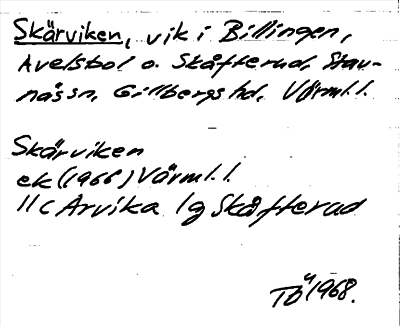 Skärviken, vik i Billingen,
Avelsbol o. Skåfterud, Stav-
näs sn, Gillbergs hd, Värml.l.
Skärviken
ek (1966) Värml.l.
11c Arvika 1g Skåfterud
TÖ 1968.